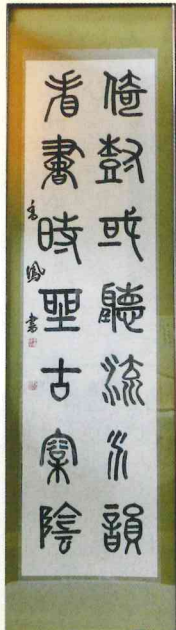 倚樹或聽流水韻
看書時坐古松陰
鳳書